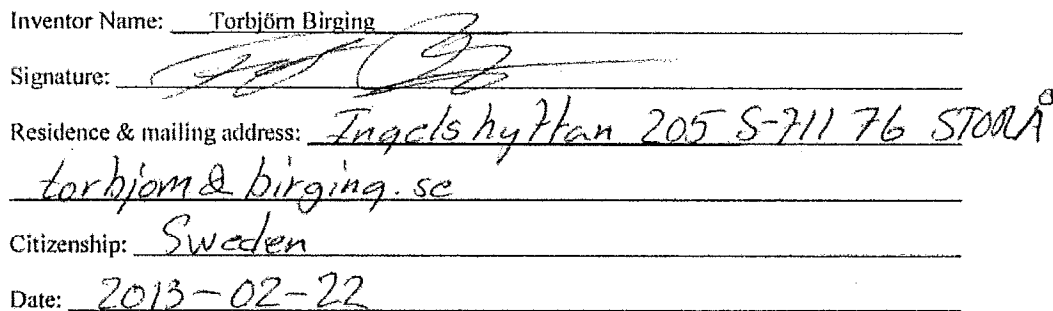 Inventor Name: Torbjörn Birging
Signature:
Residence & mailing address: Ingelshyttan 205 S-711 76 STORÅ
torbjorn@birging.se
Citizenship: Sweden
Date: 2013-02-22